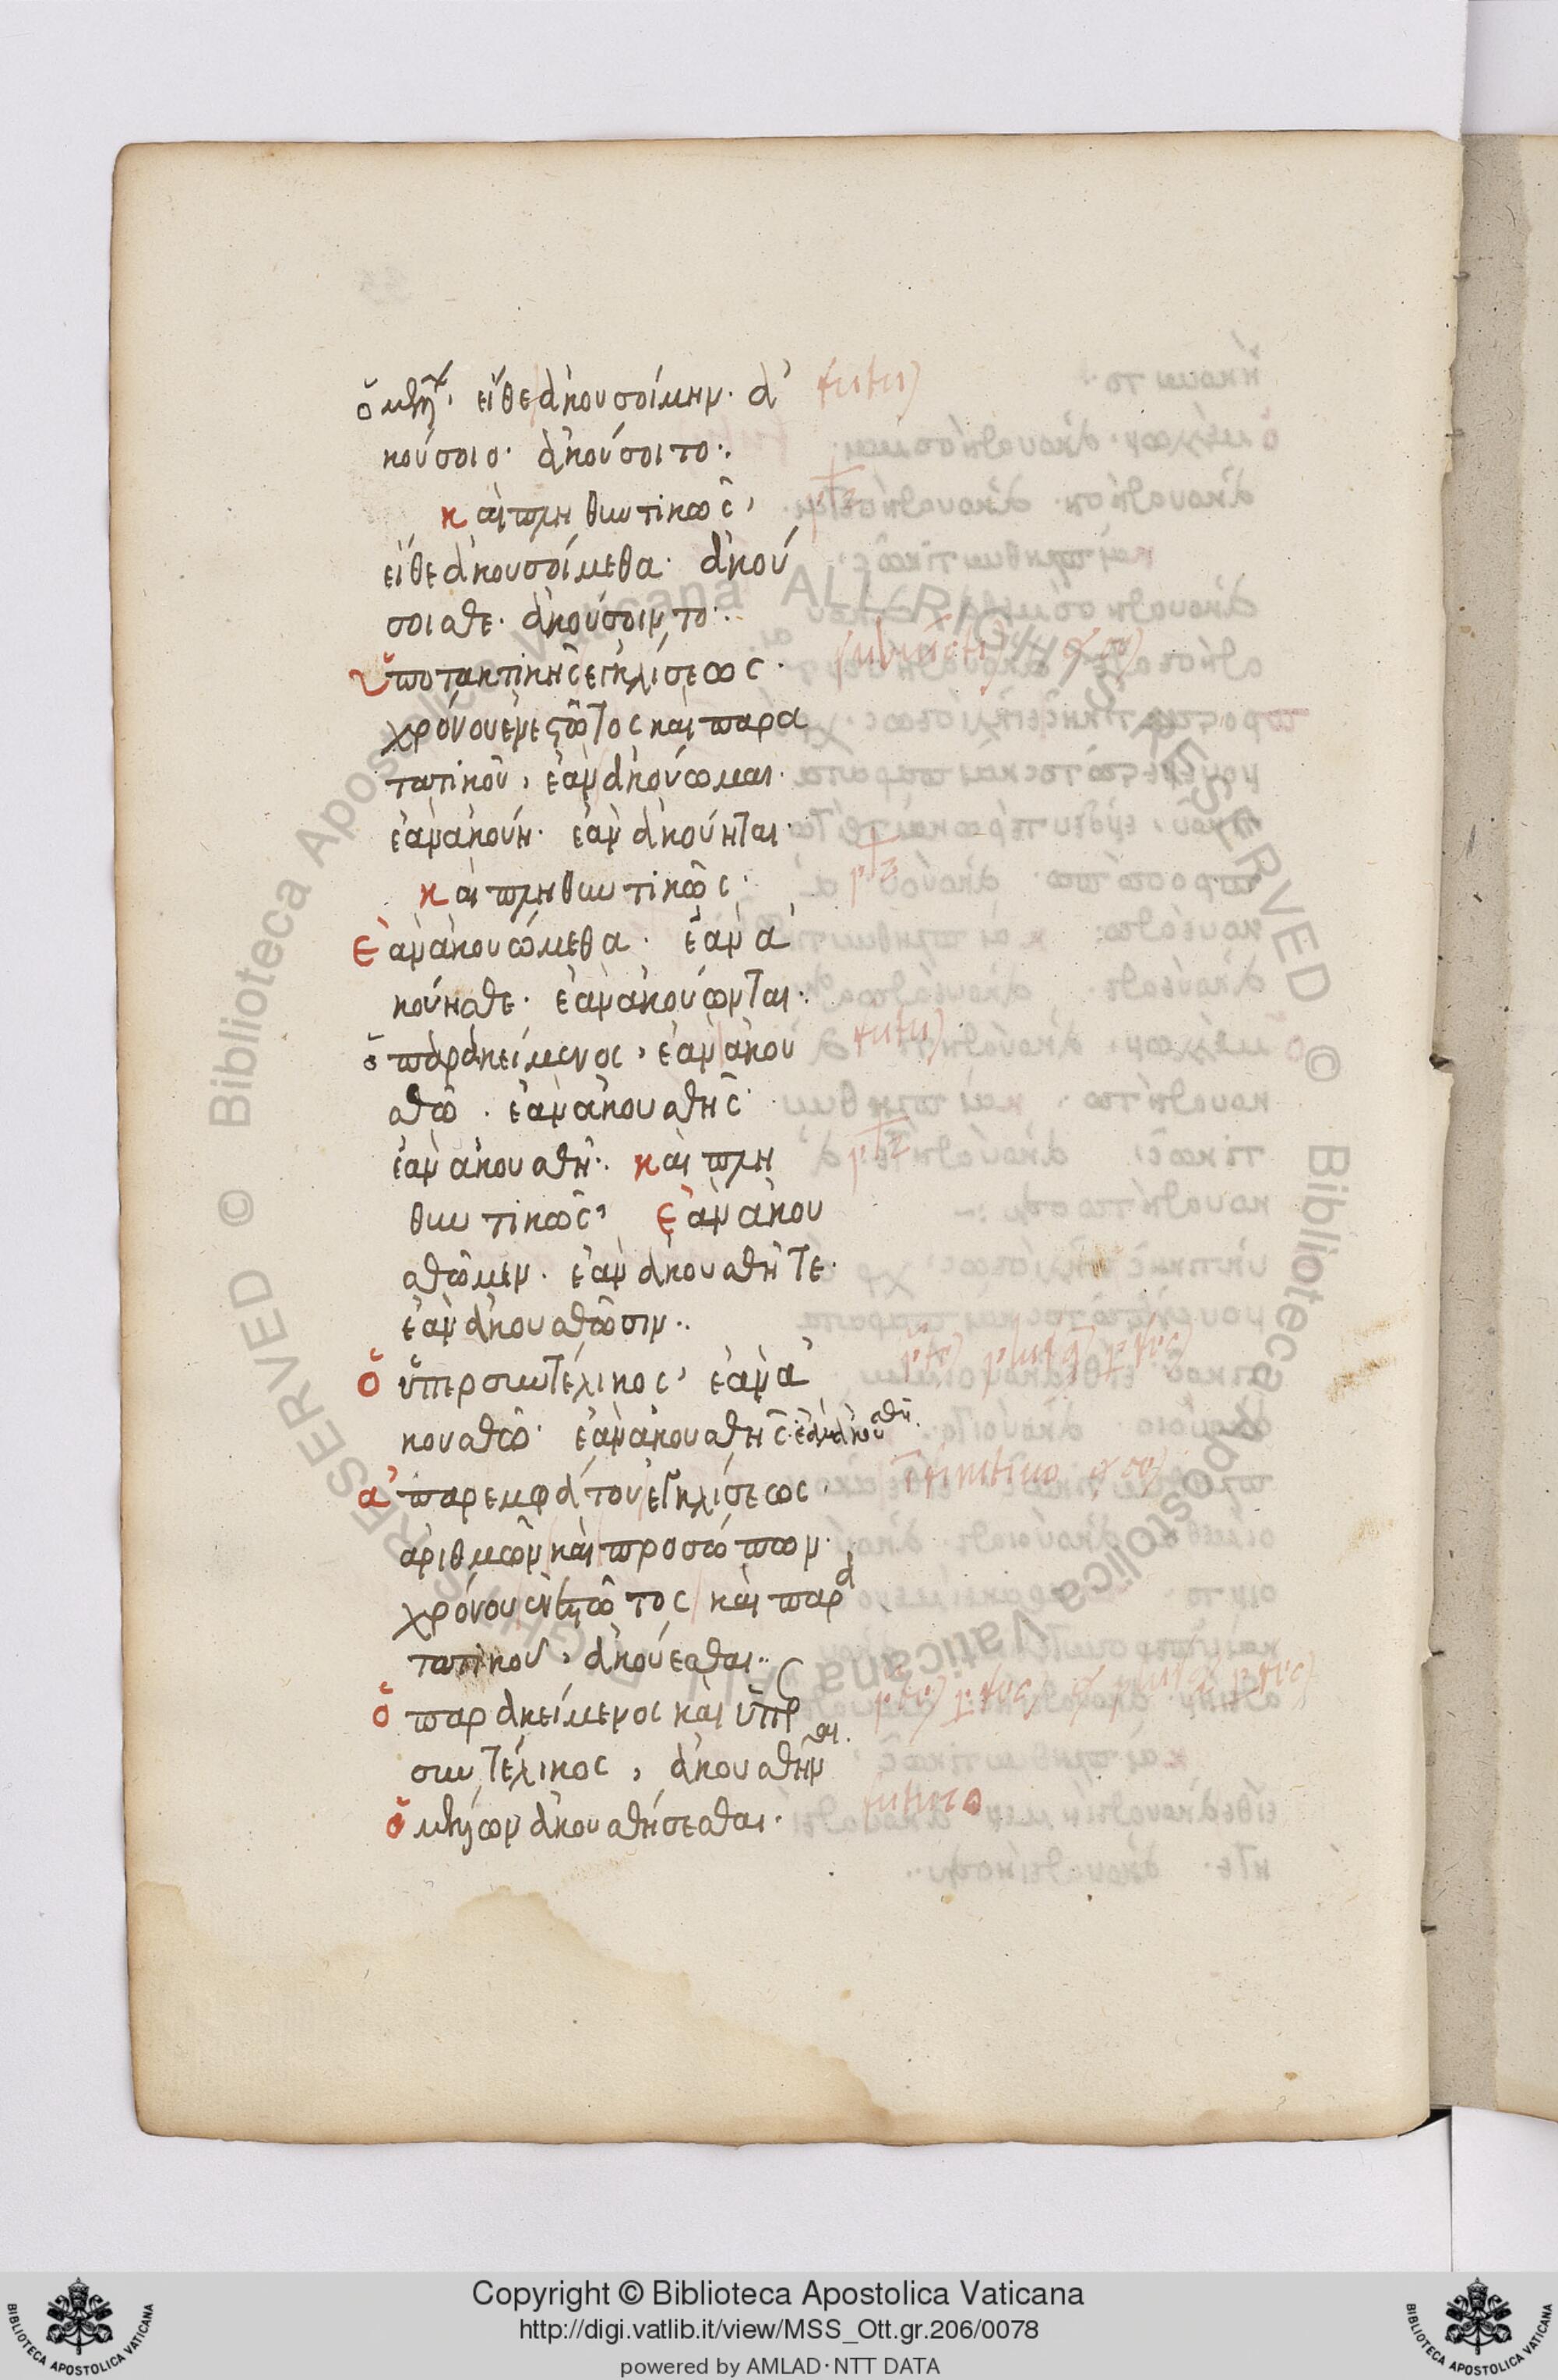 ὁ μέλλων, εἴθε ἀκουσοίμην· ἀ futurum
κούσοιο· ἀκούσοιτο·.
καὶ πληθυντικῶς,
εἴθε ἀκουσοίμεθα· ἀκού
σοισθε· ἀκούσοιντο·.
ὑποτακτικῆς ἐγκλίσεως·
χρόνου ἐνεστῶτος καὶ παρα
τατικοῦ, ἐὰν ἀκούωμαι·
ἐὰν ἀκούη· ἐὰν ἀκούηται·
καὶ πληθυντικῶς·
ἐὰν ἀκουώμεθα· ἐὰν ἀ
κούησθε· ἐὰν ἀκούωνται·.
ὁ παρακείμενος, ἐὰν ἀκου
σθῶ· ἐὰν ἀκουσθῆς·
ἐὰν ἀκουσθῆ·. καὶ πλη
θυντικῶς, ἐὰν ἀκου
σθῶμεν· ἐὰν ἀκουσθῆτε·
ἐὰν ἀκουσθῶσιν··
ὁ ὑπερσυντέλικος, ἐὰν ἀ
κουσθῶ· ἐὰν ἀκουσθῆς· ἐὰν ἀκουσθῆ·
ἀπαρεμφάτου ἐγκλίσεως,
ἀριθμῶν καὶ προσώπων·
χρόνου ἐνεστῶτος καὶ παρα
τατικοῦ, ἀκούεσθαι··
ὁ παρακείμενος καὶ ὑπερ
συντέλικος, ἀκουσθῆναι·
ὁ μέλλων ἀκουσθήσεσθαι· futuro
Copyright © Biblioteca Apostolica Vaticana
http://digi.vatlib.it/view/MSS_Ott.gr.206/0078
powered by AMLAD·NTT DATA
BIBLIOTECA APOSTOLICA VATICANA
BIBLIOTECA APOSTOLICA VATICANA